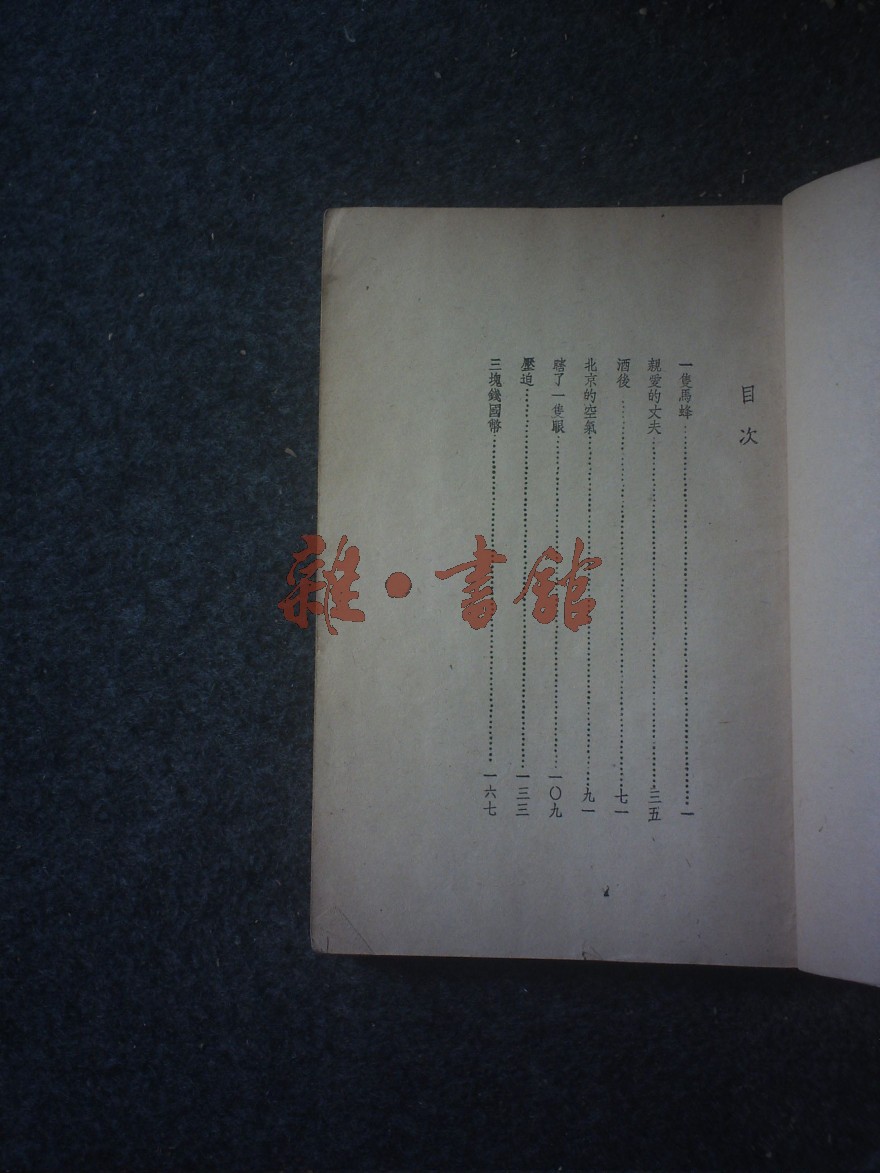 目次
一隻馬蜂………一
親愛的丈夫………三五
酒後………七一
北京的空氣………九一
瞎了一隻眼………一〇九
壓迫………一三三
三塊錢國幣………一六七
雜·書館